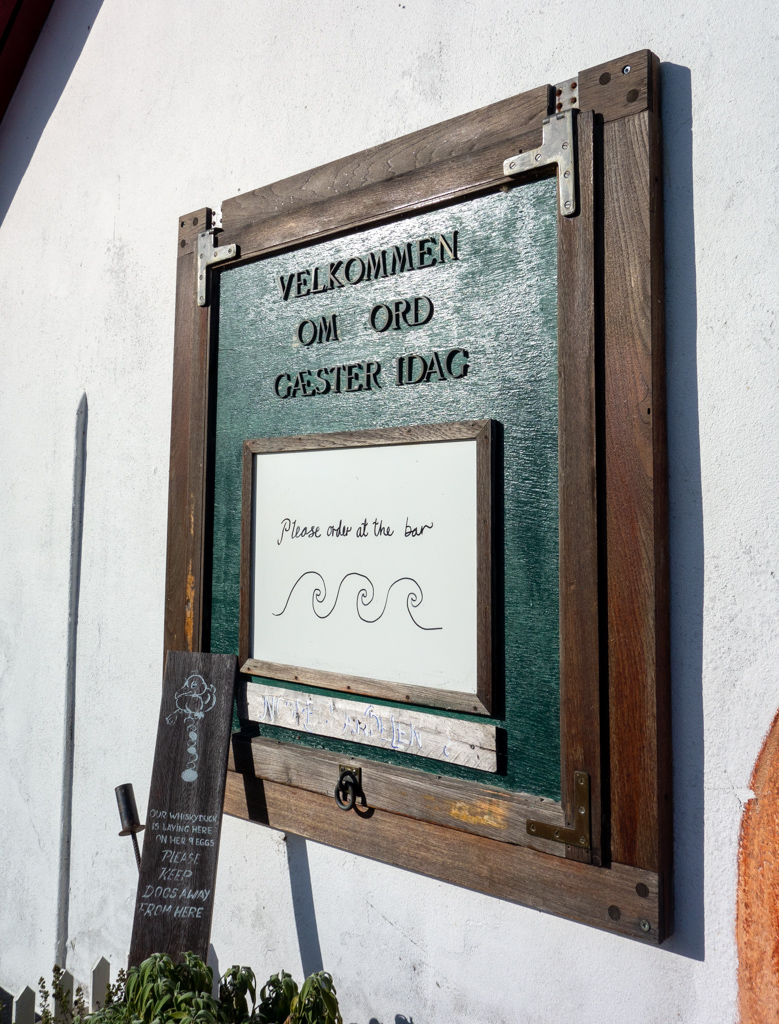 VELKOMMEN
OM ORD
GÆSTER IDAG
Please order at the bar
OUR WHISKYDUCK
IS LAYING HERE
ON HER 9 EGGS
PLEASE
KEEP
DOGS AWAY
FROM HERE